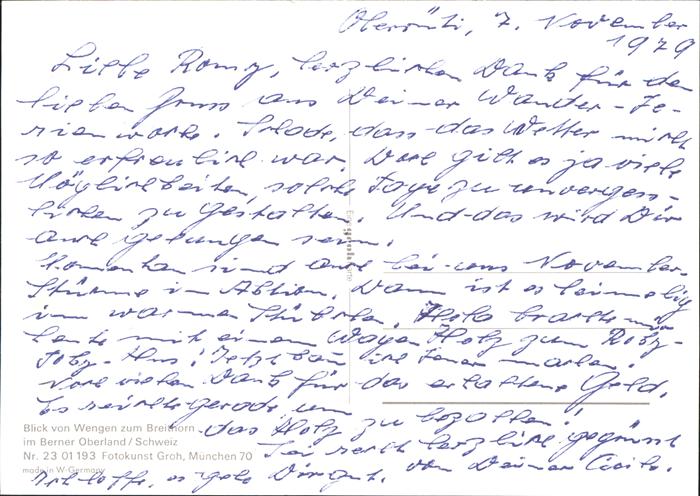 Oberrüti, 7. November
1979
Liebe Romy, herzlichen Dank für den
lieben Gruss aus Deiner Wander-Fe-
rienwoche. Schade, dass das Wetter nicht
so erfreulich war. Doch gibt es ja viele
Möglichkeiten, solche Tage zu unvergess-
lichen zu gestalten. Und das wird Dir
auch gelungen sein.
Momentan sind auch bei uns November-
Stürme in Aktion. Dann ist es heimelig
im warmen Stübchen. brachte man
heute mit einem Wagen Holz zum
Jetzt kann ich Feuer machen.
Noch vielen Dank für das erhaltene Geld.
Es reichte gerade um
das Holz zu bezahlen!
Sei recht herzlich gegrüsst
Ich hoffe, es gehe Dir gut. von Deiner Cécile.
Blick von Wengen zum Breithorn
im Berner Oberland / Schweiz
Nr. 23 01 193 Fotokunst Groh, München 70
made in W-Germany